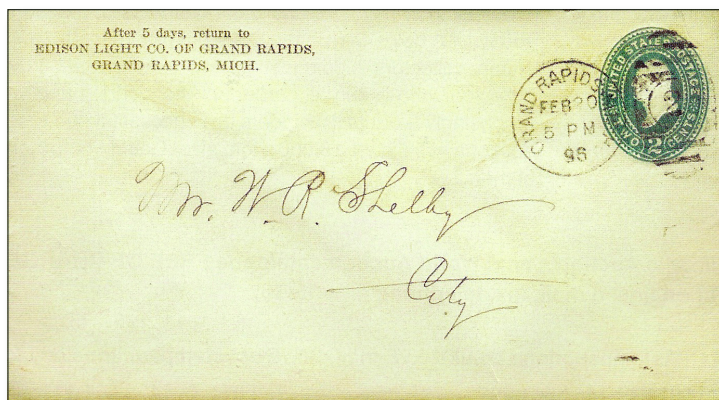 After 5 days, return to
EDISON LIGHT CO. OF GRAND RAPIDS,
GRAND RAPIDS, MICH.
GRAND RAPIDS
FEB 20
5 PM
96
UNITED STATES POSTAGE
TWO 2 CENTS
Mr. W. R. Shelby
City